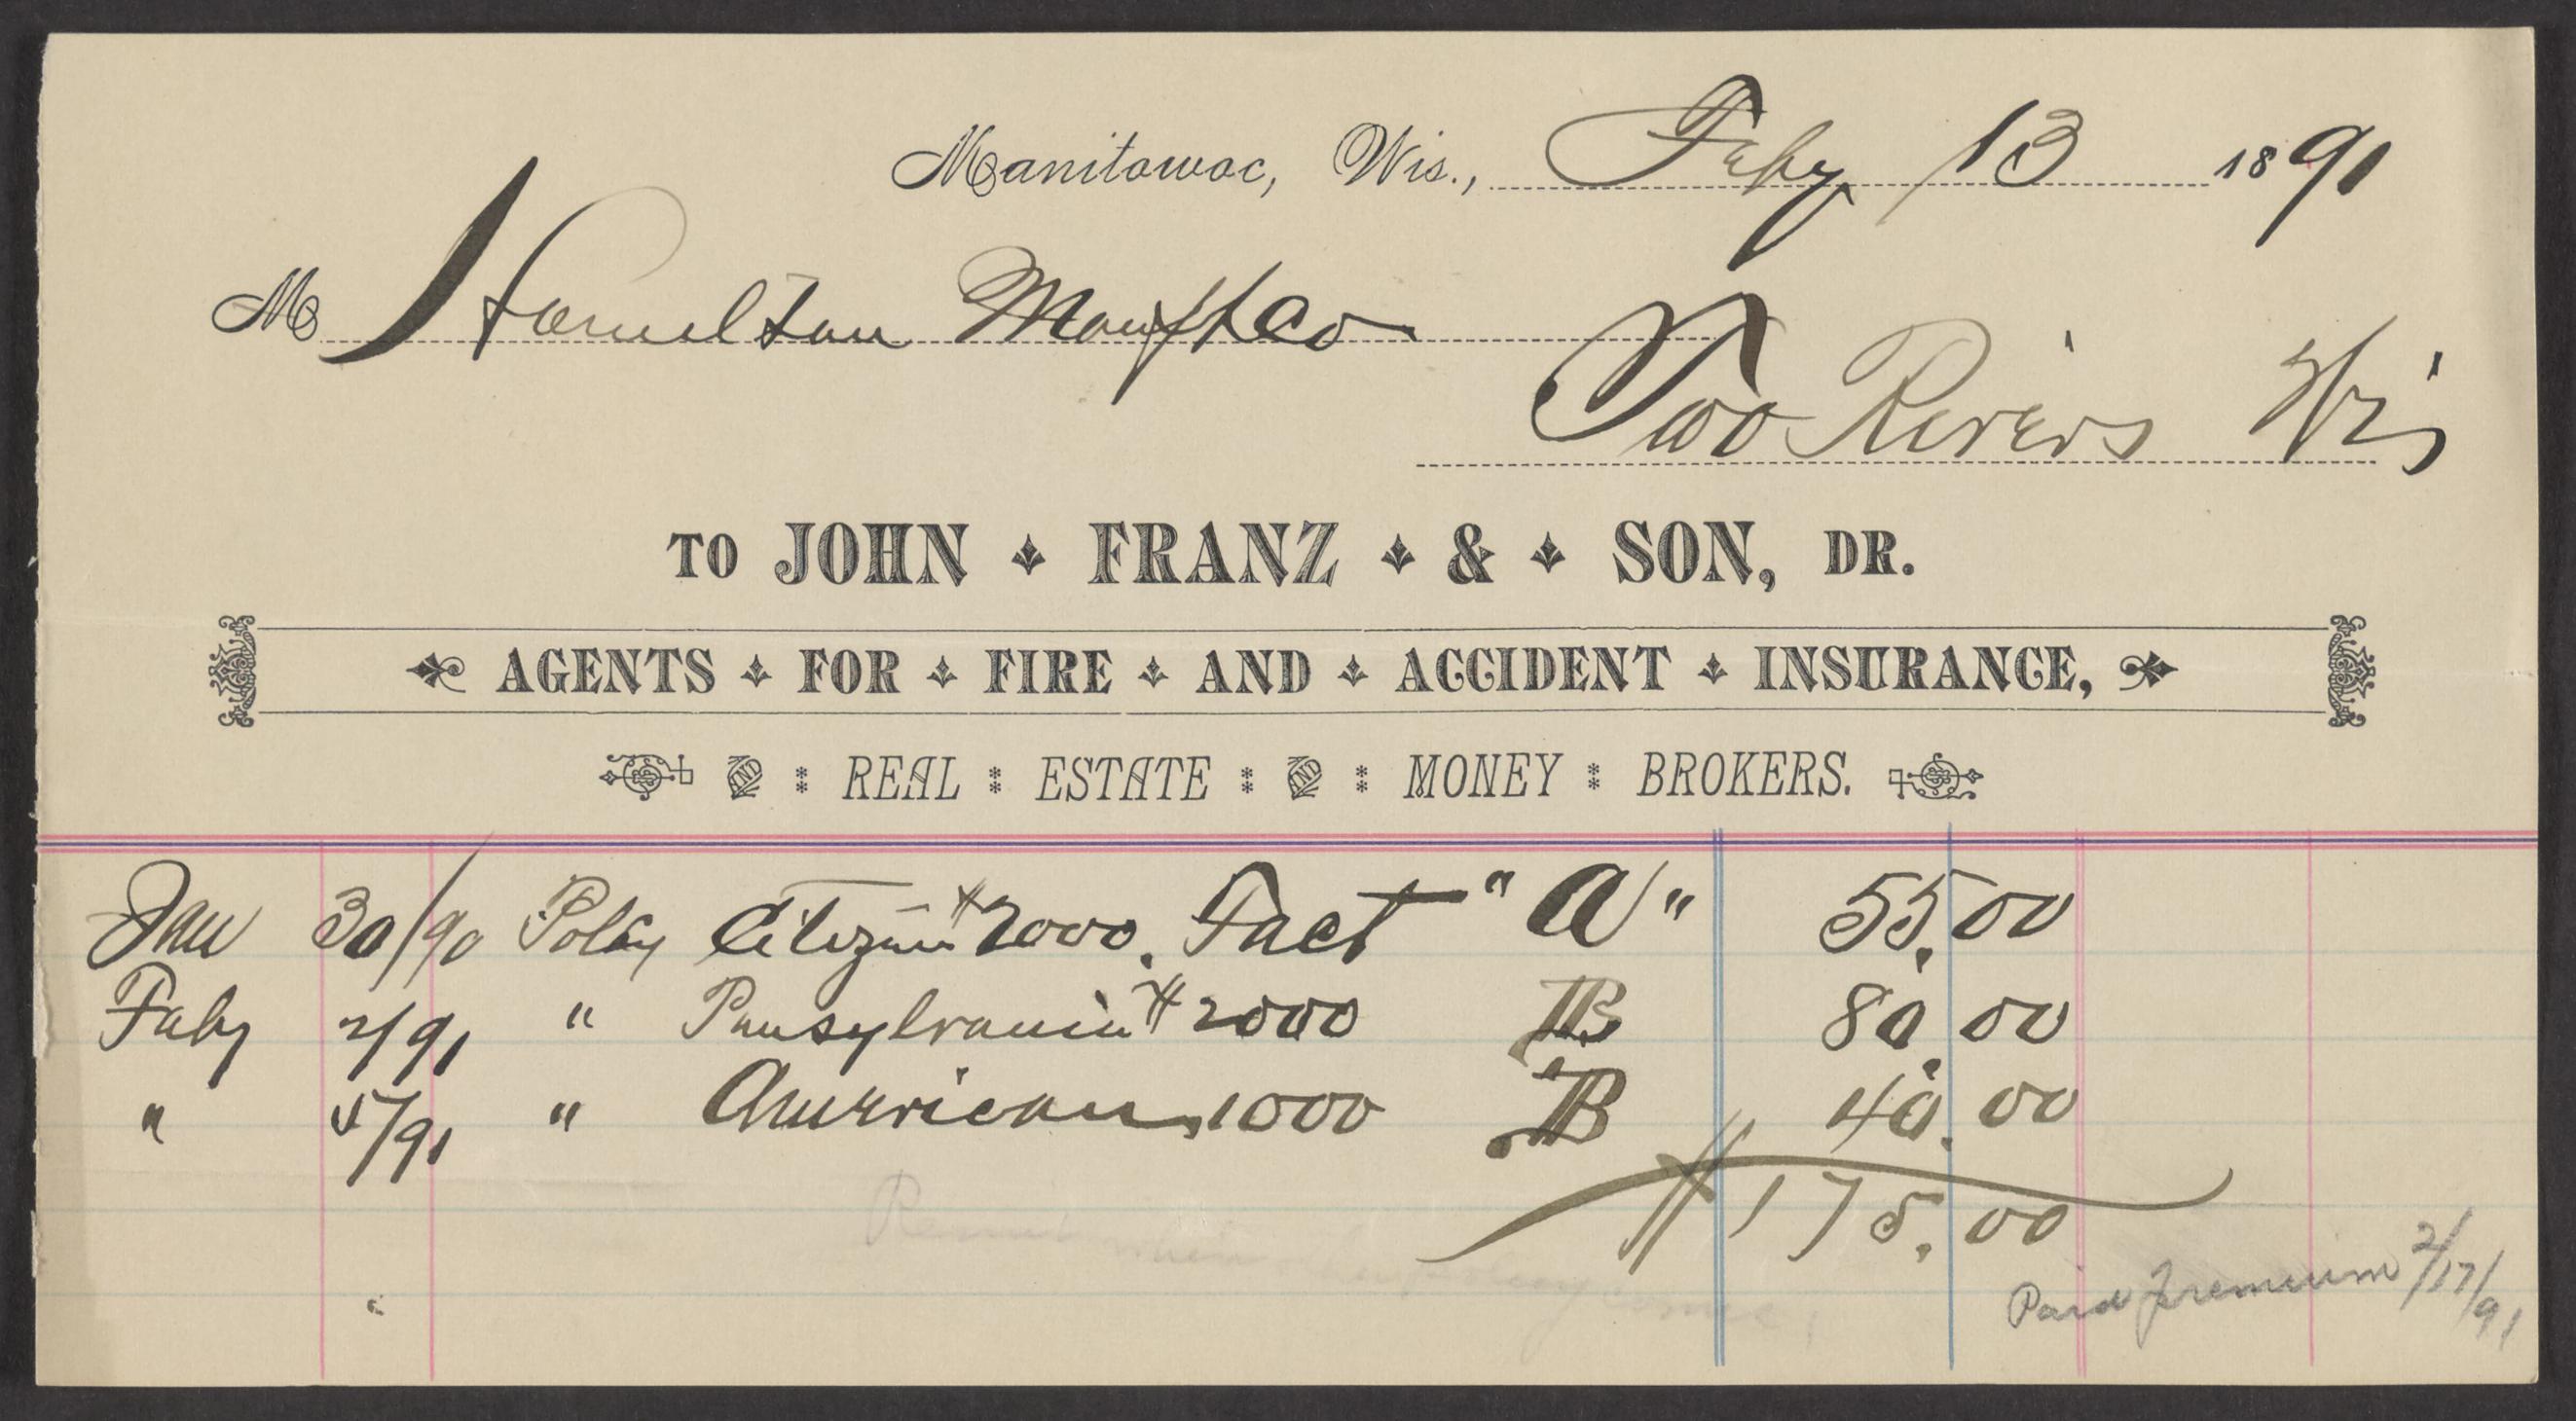 Manitowoc, Wis., Feby 13 1891
M Hamilton Manftco
Two Rivers Wis
TO JOHN & FRANZ & SON, DR.
AGENTS FOR FIRE AND ACCIDENT INSURANCE,
REAL ESTATE AND MONEY BROKERS.
Jan 30/90 Policy Citizens $2000. Fact "A" 55.00
Feby 2/91 " Pennsylvania $2000 B 80.00
" 5/91 " American, 1000 B 40.00
$175.00
Remit when the policy comes,
Paid Premium 2/17/91